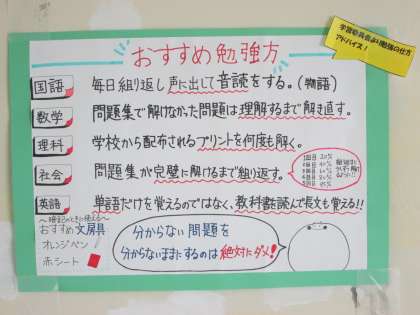 おすすめ勉強方
学習委員会より勉強の仕方
アドバイス！
国語 毎日くり返し声に出して音読をする。(物語)
数学 問題集で解けなかった問題は理解するまで解き直す。
理科 学校から配布されるプリントを何度も解く。
社会 問題集が完璧に解けるまで繰り返す。
英語 単語だけを覚えるのではなく、教科書を読んで長文も覚える!!
〜暗記のときに使える〜
おすすめ文房具
オレンジペン
赤シート
分からない問題を
分からないままにするのは絶対にダメ!